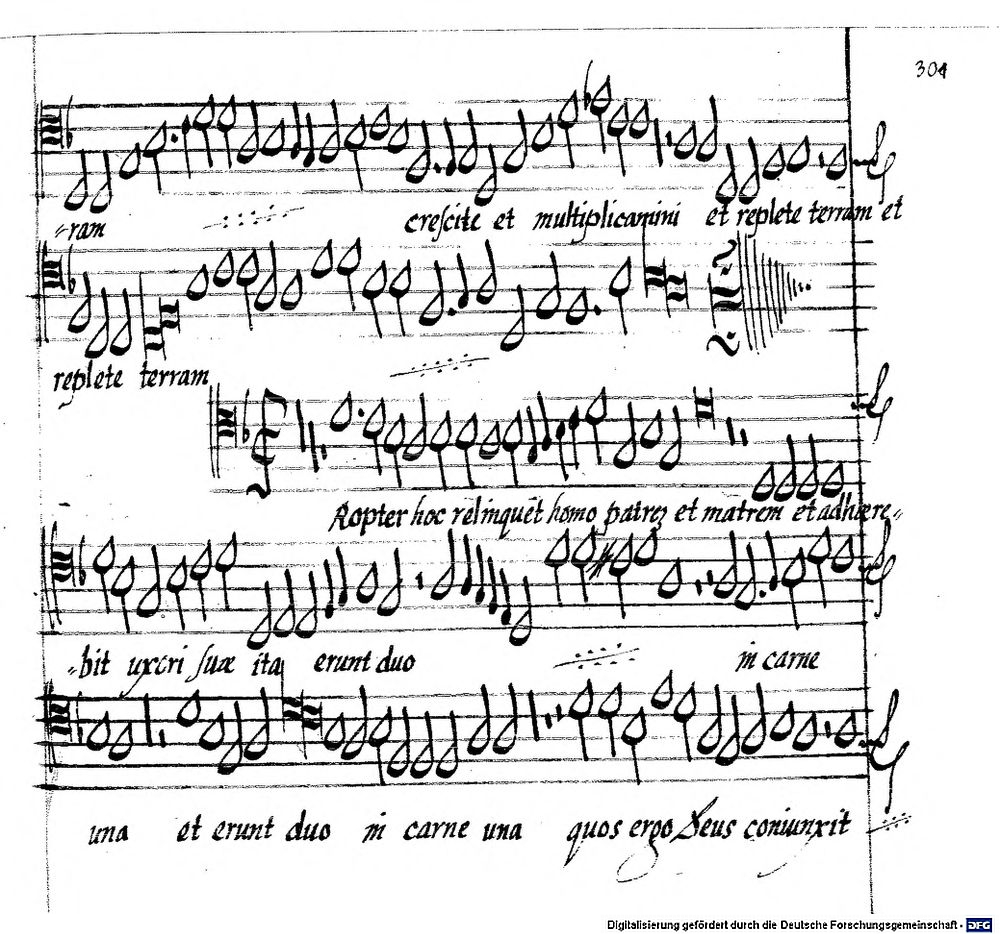 304
-ram crescite et multiplicamini et replete terram et
replete terram
Ropter hoc relinquēt homo patrez et matrem et adhære-
-bit uxori suæ ita erunt duo in carne
una et erunt duo in carne una quos ergo Deus coniunxit
Digitalisierung gefördert durch die Deutsche Forschungsgemeinschaft - DFG